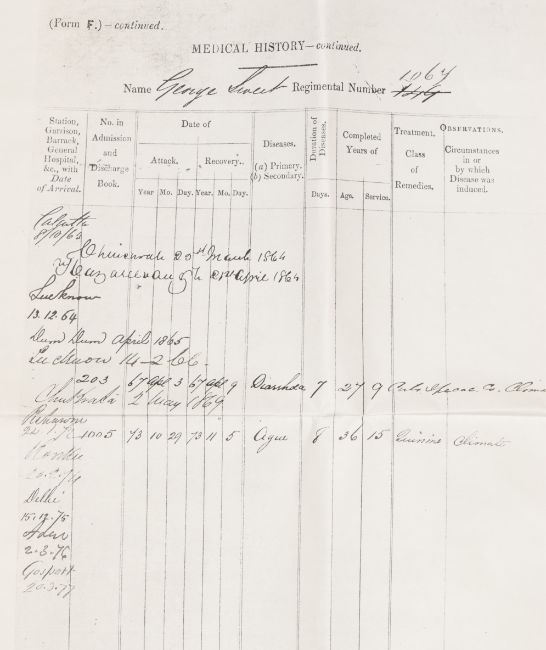 (Form F.)—continued.
MEDICAL HISTORY—continued.
1064
Name George Sweet Regimental Number
Station, Garrison, Barrack, General Hospital, &c., with Date of Arrival.
No. in Admission and Discharge Book.
Date of
Attack. Recovery.
Year Mo. Day. Year. Mo. Day.
Diseases. (a) Primary. (b) Secondary.
Duration of Diseases.
Days.
Completed Years of
Age. Service.
Treatment. Class of Remedies.
OBSERVATIONS. Circumstances in or by which Disease was induced.
Calcutta
Chinsurah 20th March 1864
Hazareebaugh 21st April 1864
Lucknow
13.12.64
Dum Dum April 1865
Lucknow 14-2-66.
203 67 Apl 3 67 Apl 9 Diarrhœa 7 27 9
Chukrata 2 May 1869
1005 73 10 29 73 11 5 Ague 8 36 15 Quinine Climate
Delhi
15.12.75
Aden
2-3-76
Gosport
20.3.77